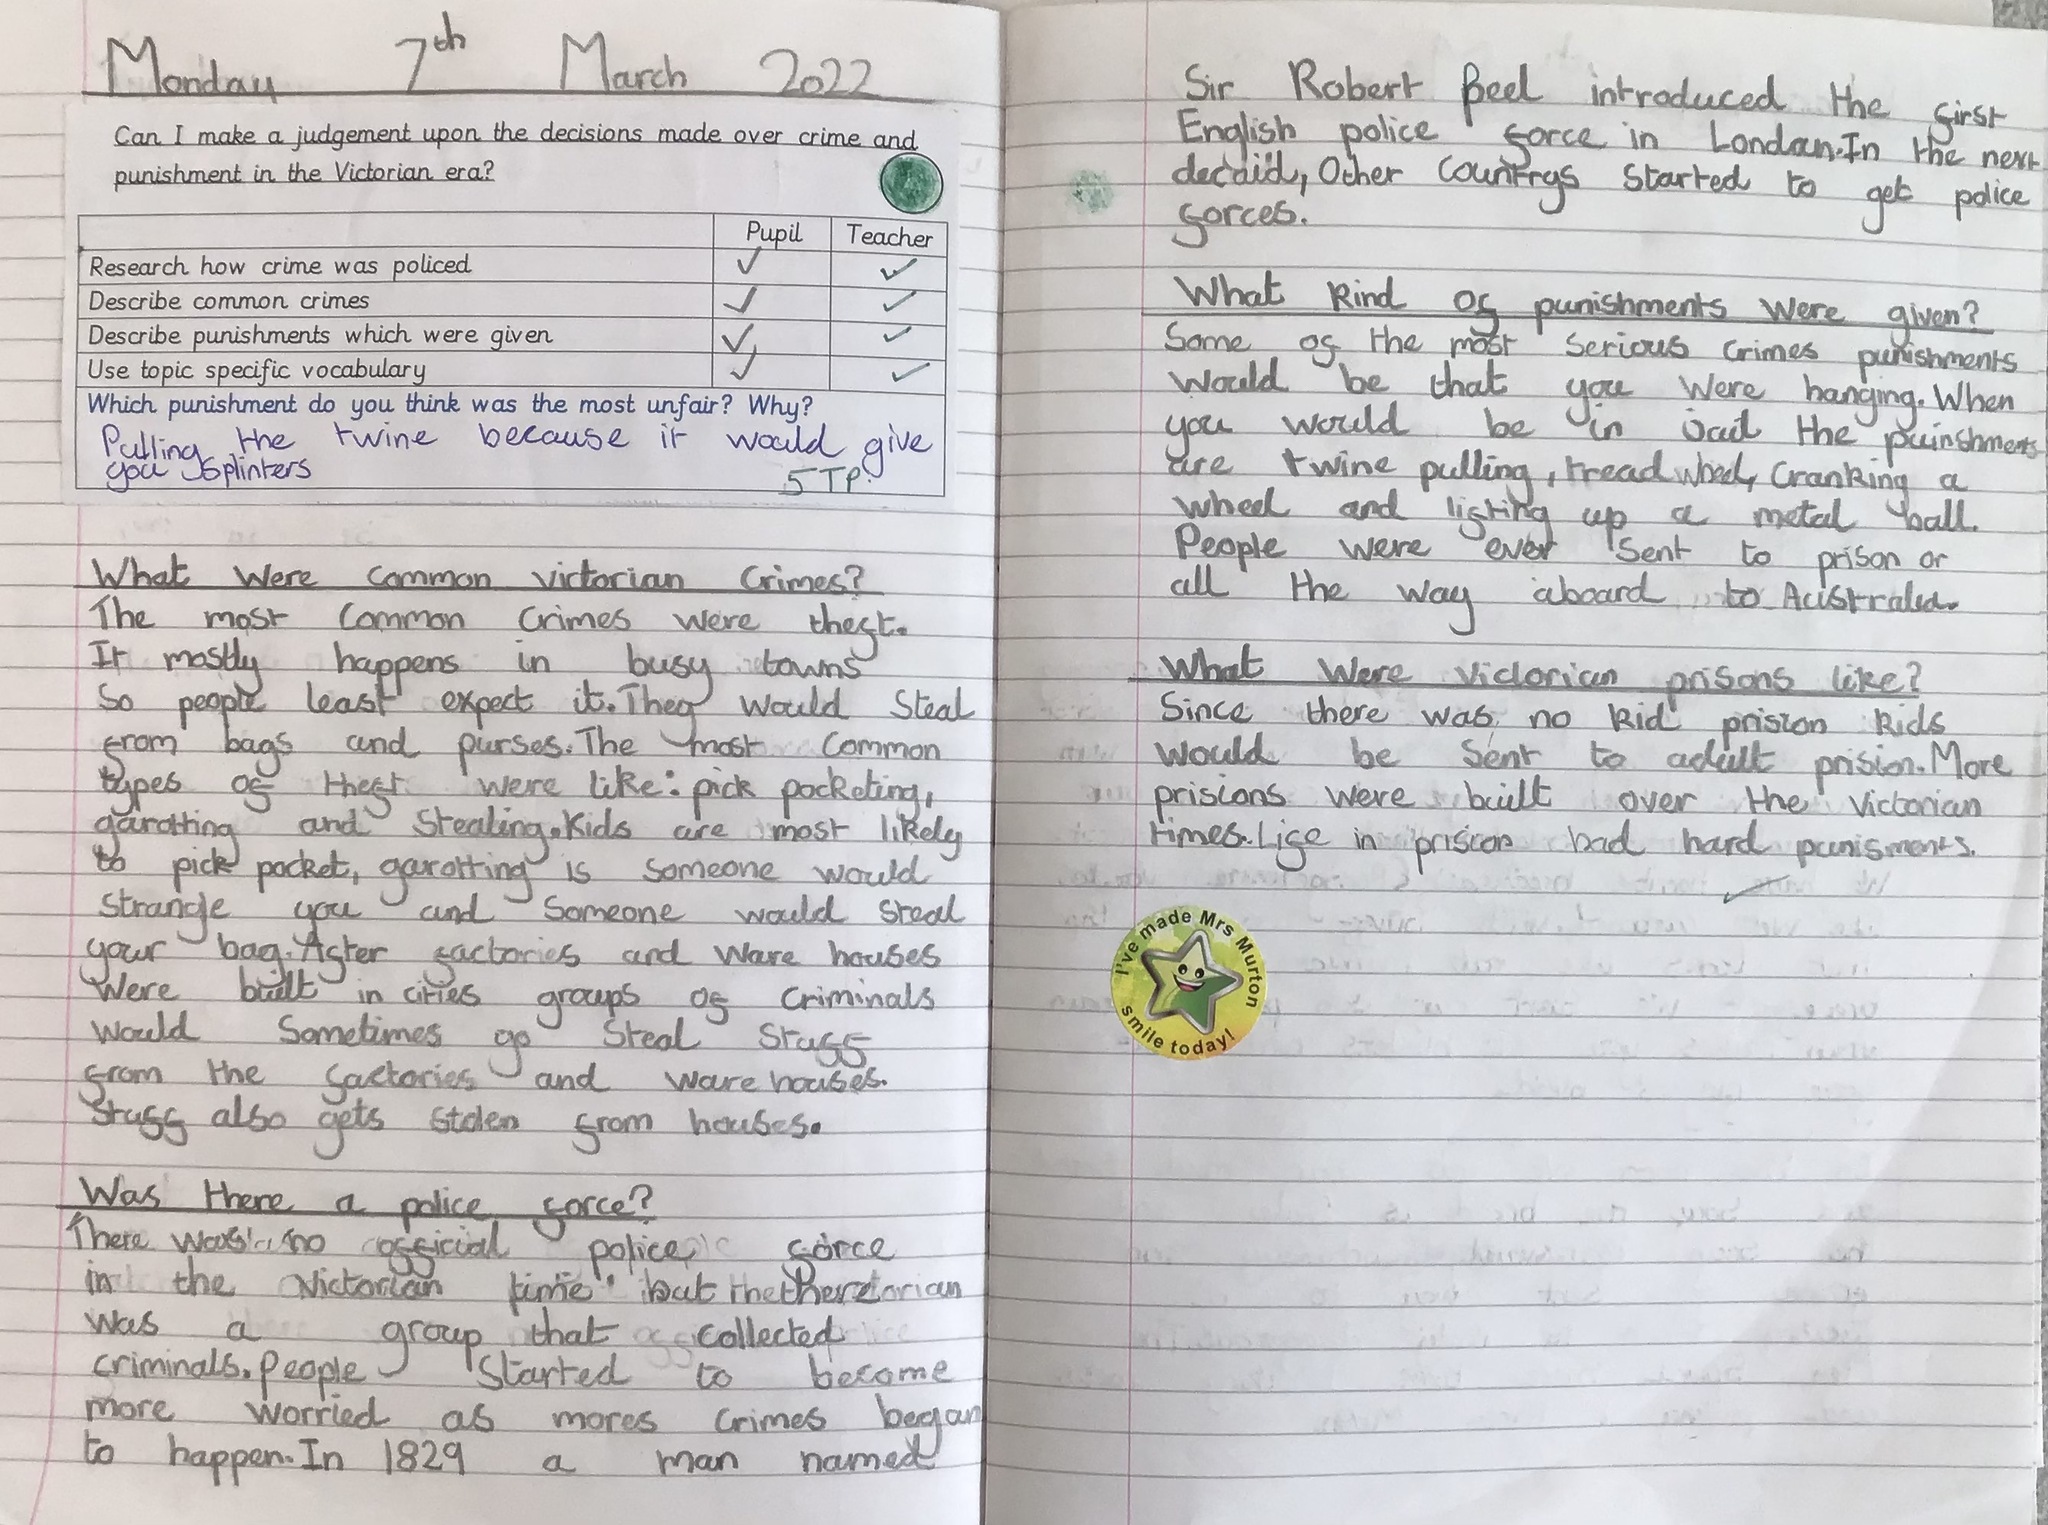 Monday 7th March 2022
Can I make a judgement upon the decisions made over crime and
punishment in the Victorian era?
Pupil Teacher
Research how crime was policed ✓ ✓
Describe common crimes ✓ ✓
Describe punishments which were given ✓ ✓
Use topic specific vocabulary ✓ ✓
Which punishment do you think was the most unfair? Why?
Pulling the twine because it would give
you splinters
5TP.
What were common victorian crimes?
The most common crimes were theft.
It mostly happens in busy towns
So people least expect it. They would steal
from bags and purses. The most common
types of theft were like: pick pocketing,
garotting and stealing. Kids are most likely
to pick pocket, garotting is someone would
strangle you and someone would steal
your bag. After factories and ware houses
were built in cities groups of criminals
would sometimes go steal stuff
from the factories and ware houses.
Stuff also gets stolen from houses.
Was there a police force?
There was no official police force
in the Victorian time but there
was a group that collected
criminals. People started to become
more worried as mores crimes began
to happen. In 1829 a man named
Sir Robert Beel introduced the first
English police force in London. In the next
decaid, Other Countrys started to get police
forces.
What kind of punishments were given?
Some of the most serious crimes punishments
would be that you were hanging. When
you would be in Jail the puinshments
are twine pulling, tread wheel, cranking a
wheel and lifting up a metal ball.
People were ever sent to prison or
all the way aboard to
What were Victorian prisons like?
Since there was no kid prision kids
would be sent to adult prision. More
prisions were built over the victorian
times. Life in prision had hard punisments.
✓
I've made Mrs Murton
smile today!